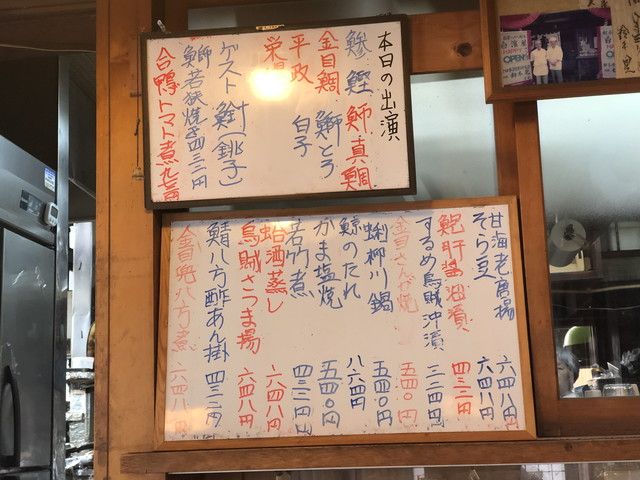 本日の出演
鯵 鰹 鰤 真鯛
金目鯛 鰤とろ
平政 白子
ゲスト 鮏(銚子)
鰤若狭焼き四三二円
合鴨トマト煮
甘海老唐揚 六四八円
そら豆 六四八円
鮑肝醤油漬 四三二円
するめ烏賊沖漬 三二四円
金目さんが焼 五四〇円
蜊柳川鍋 五四〇円
鯨のたれ 八六四円
かま塩焼 五四〇円
若竹煮 四三二円
蛤酒蒸し 六四八円
烏賊さつま揚 六四八円
鯖八方酢あん掛 四三二円
金目兜八方煮 六四八円
OPEN